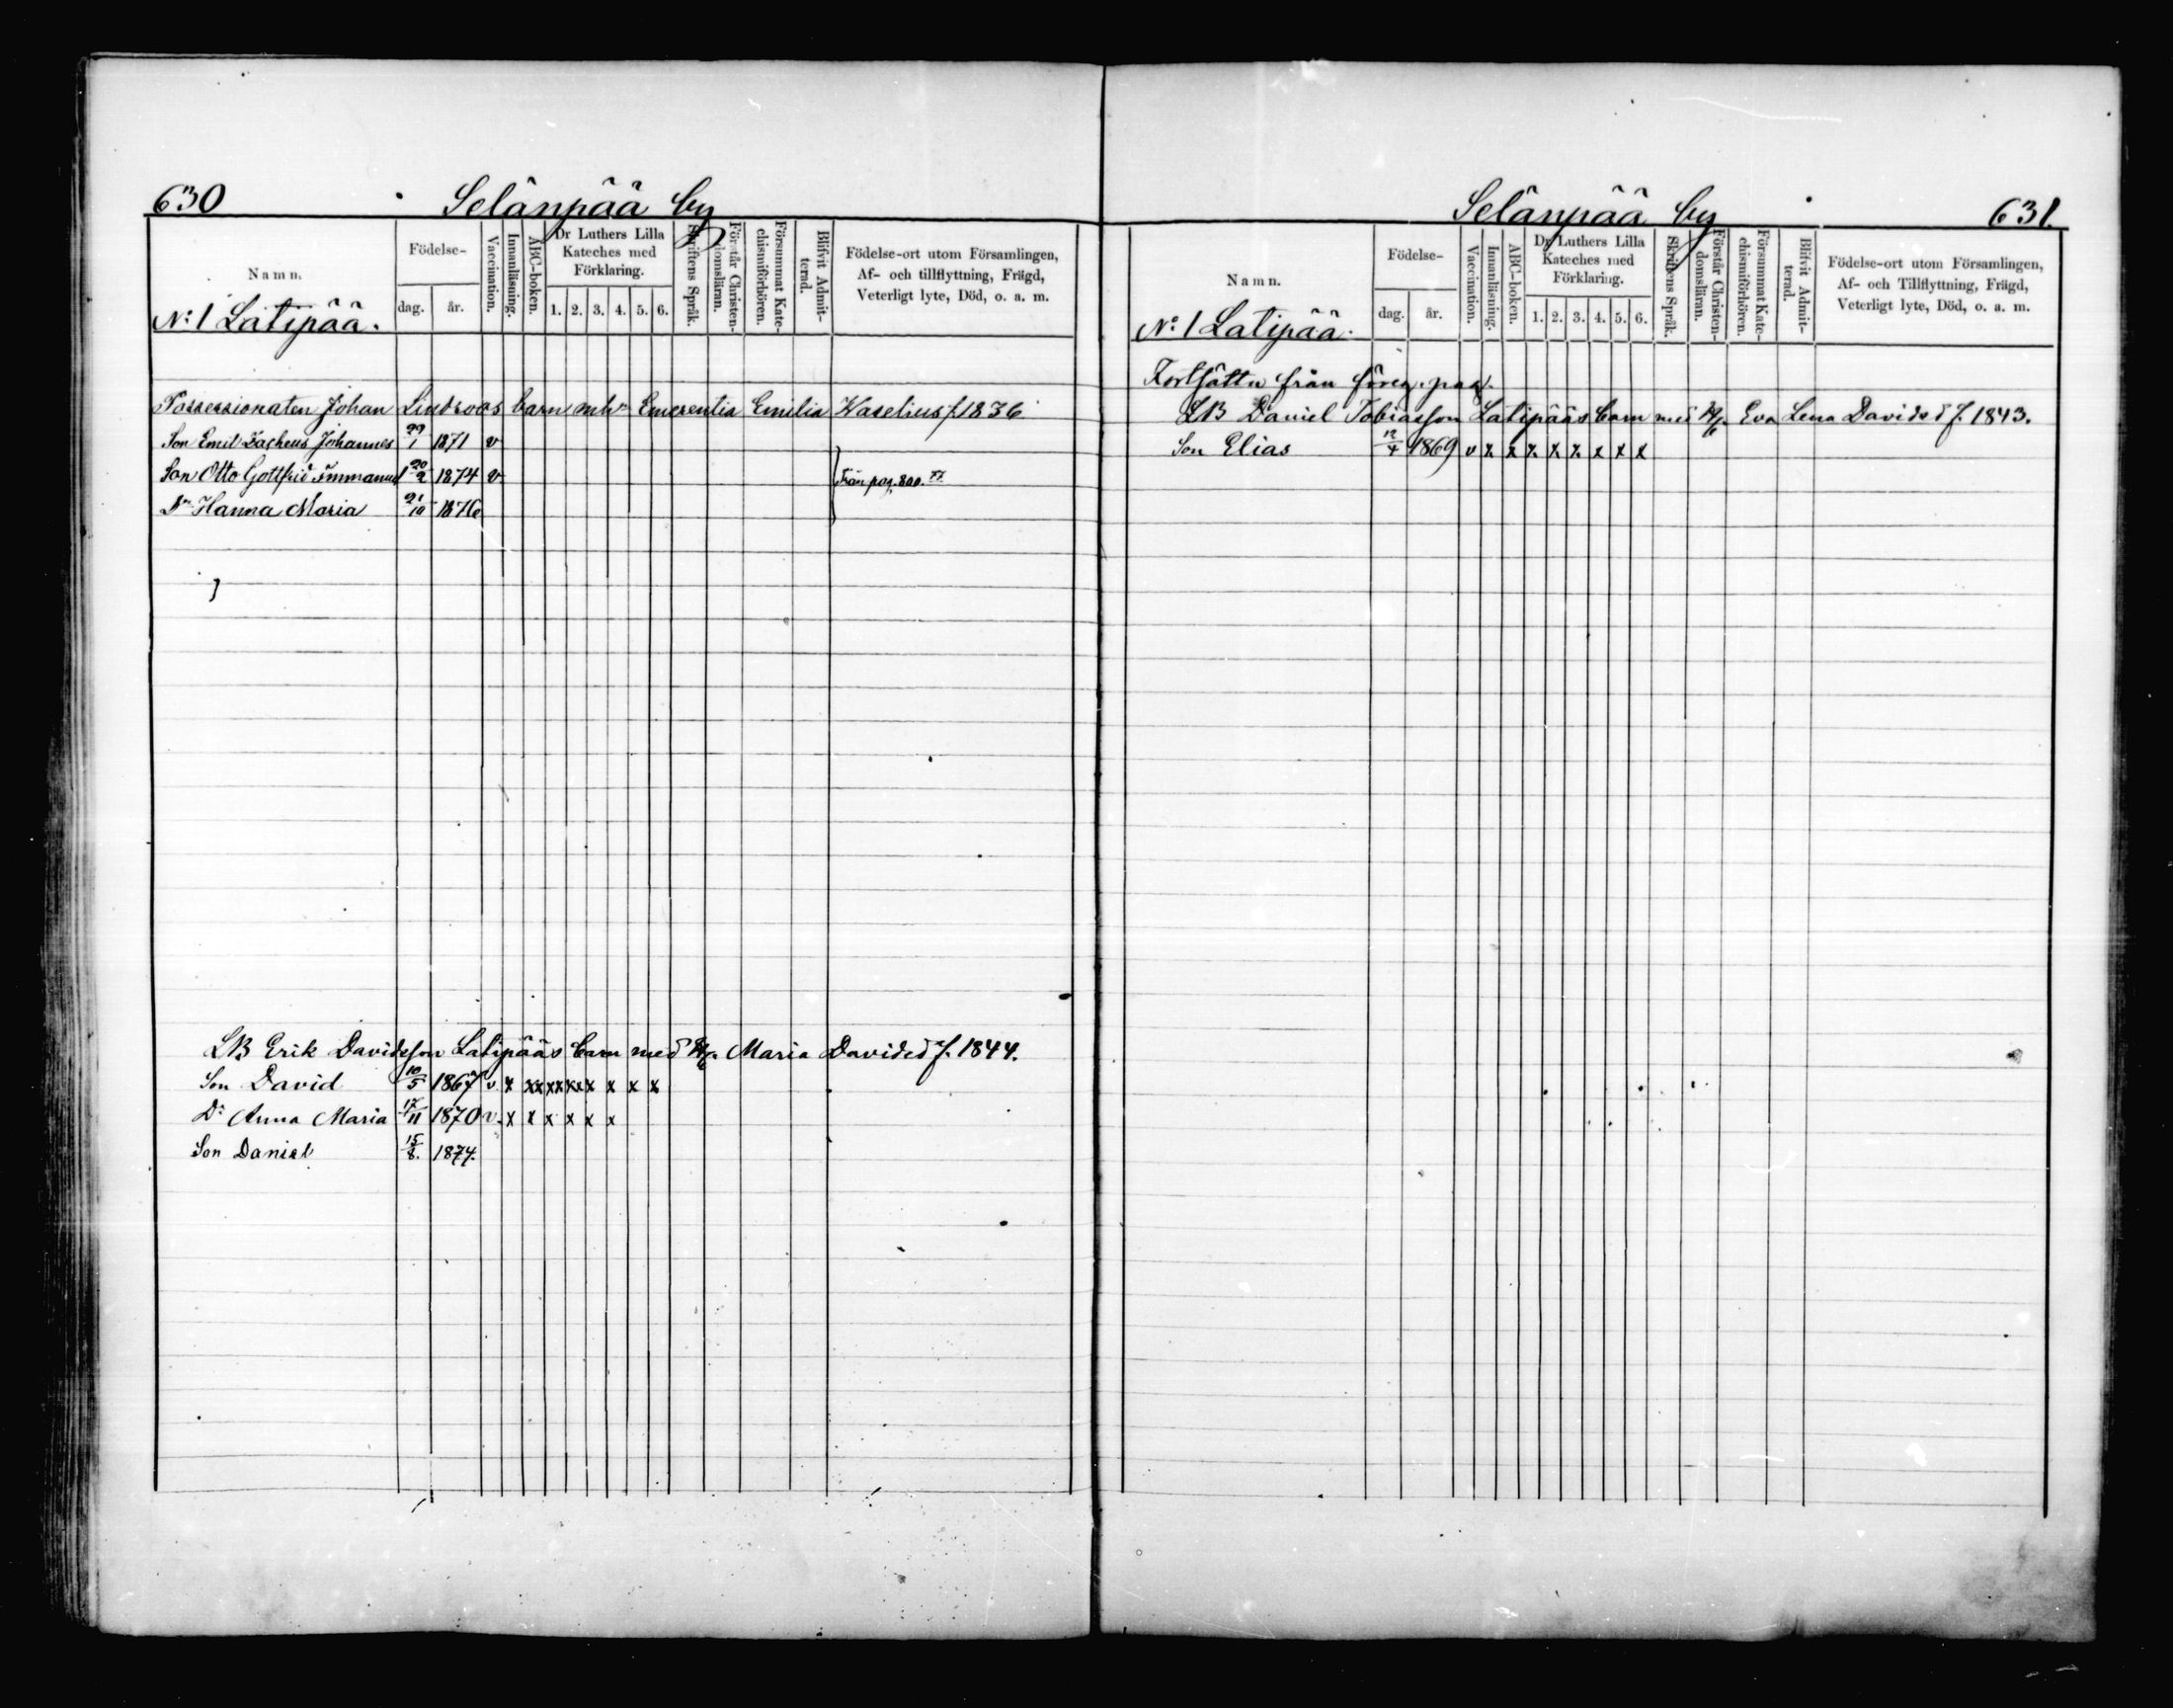 630 Selänpää by
Namn. Födelse- dag. år. Vaccination. Innanläsning. ABC-boken. Dr Luthers Lilla Kateches med Förklaring. 1. 2. 3. 4. 5. 6. Skriftens Språk. Förstår Christendomsläran. Försummat Katechismiförhören. Blifvit Admitterad. Födelse-ort utom Församlingen, Af- och tillflyttning, Frägd, Veterligt lyte, Död, o. a. m.
N:o 1 Latipää.
Possessionaten Johan Lindroos barn m h:u Emerentia Emilia Waselius f. 1836
Son Emil Zacheus Johannes 29/1 1871 v
Son Otto Gottfrid Immanuel 20/2 1874 v
Dr Hanna Maria 21/10 1876
Från pag. 800. 77
LB Erik Davidsson Latipääs barn med H/ Maria Davidsd f. 1844.
Son David 10/5 1867 v. x xx xx xx x x x x
Dr Anna Maria 17/11 1870 v. x x x x x x
Son Daniel 15/8. 1874.
Selänpää by 631.
Namn. Födelse- dag. år. Vaccination. Innanläsning. ABC-boken. Dr Luthers Lilla Kateches med Förklaring. 1. 2. 3. 4. 5. 6. Skriftens Språk. Förstår Christendomsläran. Försummat Katechismiförhören. Blifvit Admitterad. Födelse-ort utom Församlingen, Af- och Tillflyttning, Frägd, Veterligt lyte, Död, o. a. m.
N:o 1 Latipää.
Fortsättn från föreg. pag.
LB Daniel Tobiasson Latipääs barn med H/ Eva Lena Davidsd f. 1843.
Son Elias 12/4 1869 v x x x x x x x x